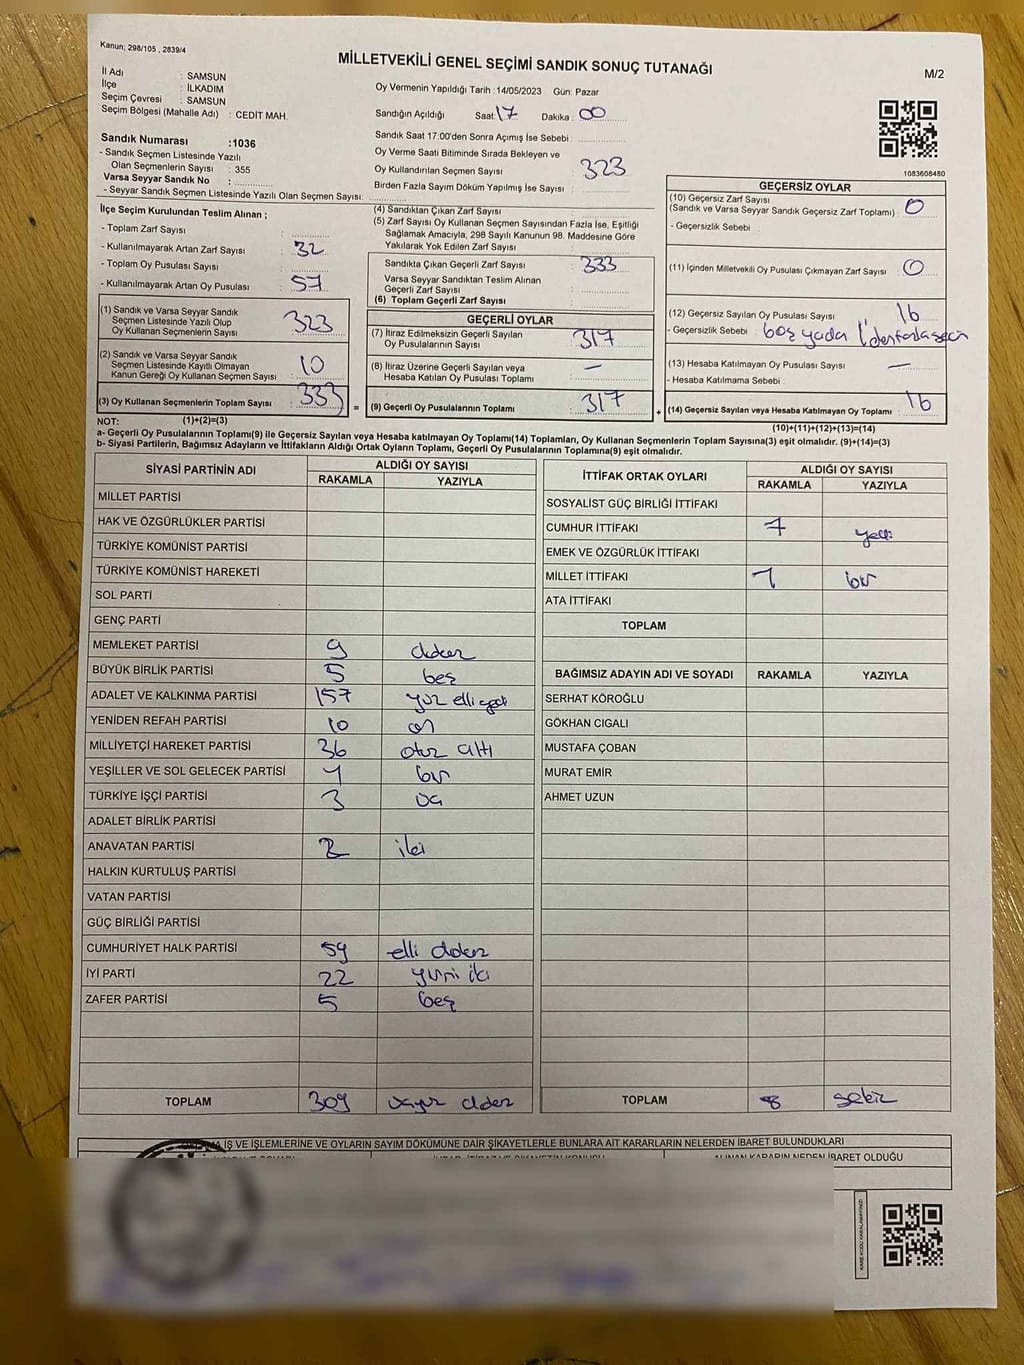 Kanun; 298/105 , 2839/4
MİLLETVEKİLİ GENEL SEÇİMİ SANDIK SONUÇ TUTANAĞI
M/2
İl Adı : SAMSUN
İlçe : İLKADIM
Seçim Çevresi : SAMSUN
Seçim Bölgesi (Mahalle Adı) : CEDİT MAH.
Sandık Numarası :1036
- Sandık Seçmen Listesinde Yazılı
Olan Seçmenlerin Sayısı : 355
Varsa Seyyar Sandık No :
- Seyyar Sandık Seçmen Listesinde Yazılı Olan Seçmen Sayısı:
Oy Vermenin Yapıldığı Tarih :14/05/2023 Gün: Pazar
Sandığın Açıldığı Saat: 17 Dakika : 00
Sandık Saat 17:00'den Sonra Açımış İse Sebebi :
Oy Verme Saati Bitiminde Sırada Bekleyen ve
Oy Kullandırılan Seçmen Sayısı : 323
Birden Fazla Sayım Döküm Yapılmış İse Sayısı :
1083608480
İlçe Seçim Kurulundan Teslim Alınan ;
- Toplam Zarf Sayısı :
- Kullanılmayarak Artan Zarf Sayısı : 32
- Toplam Oy Pusulası Sayısı :
- Kullanılmayarak Artan Oy Pusulası : 57
(1) Sandık ve Varsa Seyyar Sandık
Seçmen Listesinde Yazılı Olup
Oy Kullanan Seçmenlerin Sayısı : 323
(2) Sandık ve Varsa Seyyar Sandık
Seçmen Listesinde Kayıtlı Olmayan
Kanun Gereği Oy Kullanan Seçmen Sayısı : 10
(3) Oy Kullanan Seçmenlerin Toplam Sayısı : 333
(4) Sandıktan Çıkan Zarf Sayısı :
(5) Zarf Sayısı Oy Kullanan Seçmen Sayısından Fazla İse, Eşitliği
Sağlamak Amacıyla, 298 Sayılı Kanunun 98. Maddesine Göre
Yakılarak Yok Edilen Zarf Sayısı :
Sandıkta Çıkan Geçerli Zarf Sayısı : 333
Varsa Seyyar Sandıktan Teslim Alınan
Geçerli Zarf Sayısı :
(6) Toplam Geçerli Zarf Sayısı :
GEÇERLİ OYLAR
(7) İtiraz Edilmeksizin Geçerli Sayılan
Oy Pusulalarının Sayısı : 317
(8) İtiraz Üzerine Geçerli Sayılan veya
Hesaba Katılan Oy Pusulası Toplamı : —
= (9) Geçerli Oy Pusulalarının Toplamı : 317
GEÇERSİZ OYLAR
(10) Geçersiz Zarf Sayısı
(Sandık ve Varsa Seyyar Sandık Geçersiz Zarf Toplamı) : 0
- Geçersizlik Sebebi :
(11) İçinden Milletvekili Oy Pusulası Çıkmayan Zarf Sayısı : 0
(12) Geçersiz Sayılan Oy Pusulası Sayısı : 16
- Geçersizlik Sebebi : boş yada 1'den fazla seçim
(13) Hesaba Katılmayan Oy Pusulası Sayısı : —
- Hesaba Katılmama Sebebi :
+ (14) Geçersiz Sayılan veya Hesaba Katılmayan Oy Toplamı : 16
NOT: (1)+(2)=(3) (10)+(11)+(12)+(13)=(14)
a- Geçerli Oy Pusulalarının Toplamı(9) ile Geçersiz Sayılan veya Hesaba katılmayan Oy Toplamı(14) Toplamları, Oy Kullanan Seçmenlerin Toplam Sayısına(3) eşit olmalıdır. (9)+(14)=(3)
b- Siyasi Partilerin, Bağımsız Adayların ve İttifakların Aldığı Ortak Oyların Toplamı, Geçerli Oy Pusulalarının Toplamına(9) eşit olmalıdır.
SİYASİ PARTİNİN ADI ALDIĞI OY SAYISI
RAKAMLA YAZIYLA
MİLLET PARTİSİ
HAK VE ÖZGÜRLÜKLER PARTİSİ
TÜRKİYE KOMÜNİST PARTİSİ
TÜRKİYE KOMÜNİST HAREKETİ
SOL PARTİ
GENÇ PARTİ
MEMLEKET PARTİSİ 9 dokuz
BÜYÜK BİRLİK PARTİSİ 5 beş
ADALET VE KALKINMA PARTİSİ 157 yüz elli yedi
YENİDEN REFAH PARTİSİ 10 on
MİLLİYETÇİ HAREKET PARTİSİ 36 otuz altı
YEŞİLLER VE SOL GELECEK PARTİSİ 1 bir
TÜRKİYE İŞÇİ PARTİSİ 3 üç
ADALET BİRLİK PARTİSİ
ANAVATAN PARTİSİ 2 iki
HALKIN KURTULUŞ PARTİSİ
VATAN PARTİSİ
GÜÇ BİRLİĞİ PARTİSİ
CUMHURİYET HALK PARTİSİ 59 elli dokuz
İYİ PARTİ 22 yirmi iki
ZAFER PARTİSİ 5 beş
TOPLAM 309 üçyüz dokuz
İTTİFAK ORTAK OYLARI ALDIĞI OY SAYISI
RAKAMLA YAZIYLA
SOSYALİST GÜÇ BİRLİĞİ İTTİFAKI
CUMHUR İTTİFAKI 7 yedi
EMEK VE ÖZGÜRLÜK İTTİFAKI
MİLLET İTTİFAKI 1 bir
ATA İTTİFAKI
TOPLAM
BAĞIMSIZ ADAYIN ADI VE SOYADI RAKAMLA YAZIYLA
SERHAT KÖROĞLU
GÖKHAN CIGALI
MUSTAFA ÇOBAN
MURAT EMİR
AHMET UZUN
TOPLAM 8 sekiz
İŞ VE İŞLEMLERİNE VE OYLARIN SAYIM DÖKÜMÜNE DAİR ŞİKAYETLERLE BUNLARA AİT KARARLARIN NELERDEN İBARET BULUNDUKLARI
ALINAN KARARIN NEDEN İBARET OLDUĞU